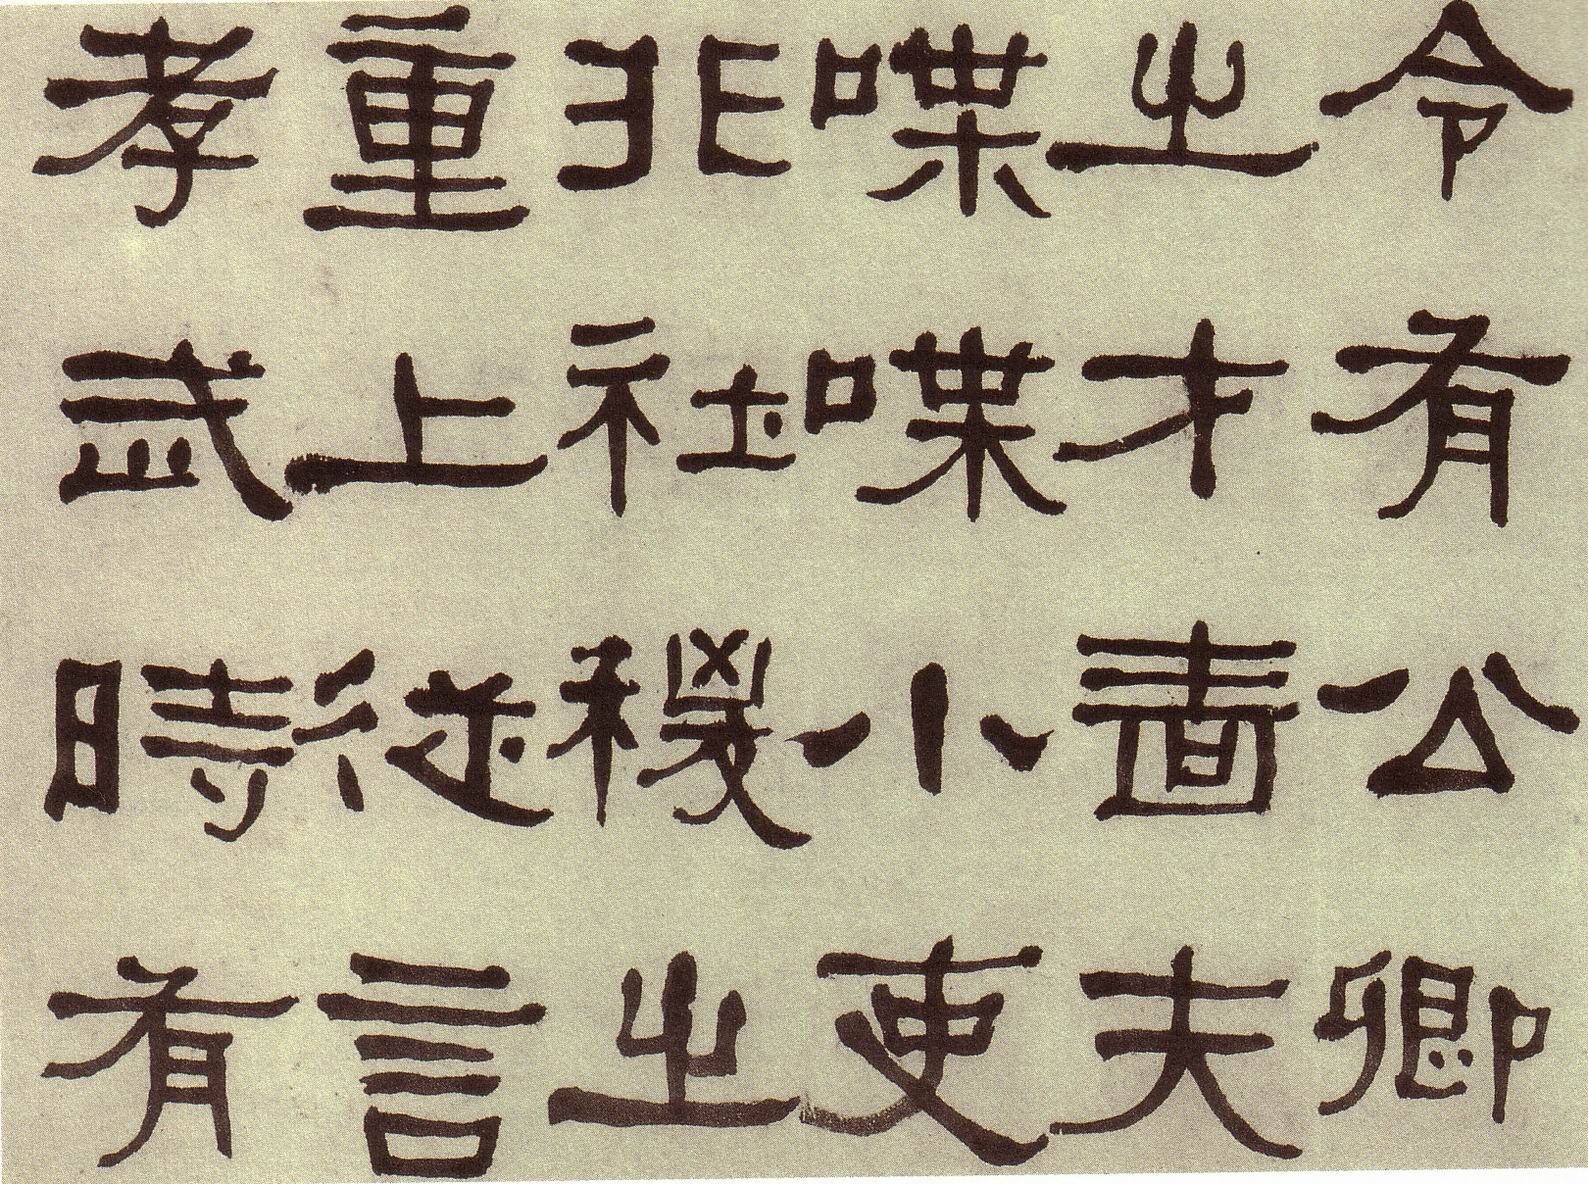 令有公卿
㞢才嗇夫
喋喋小吏
非社稷㞢
重上従言
孝武時有